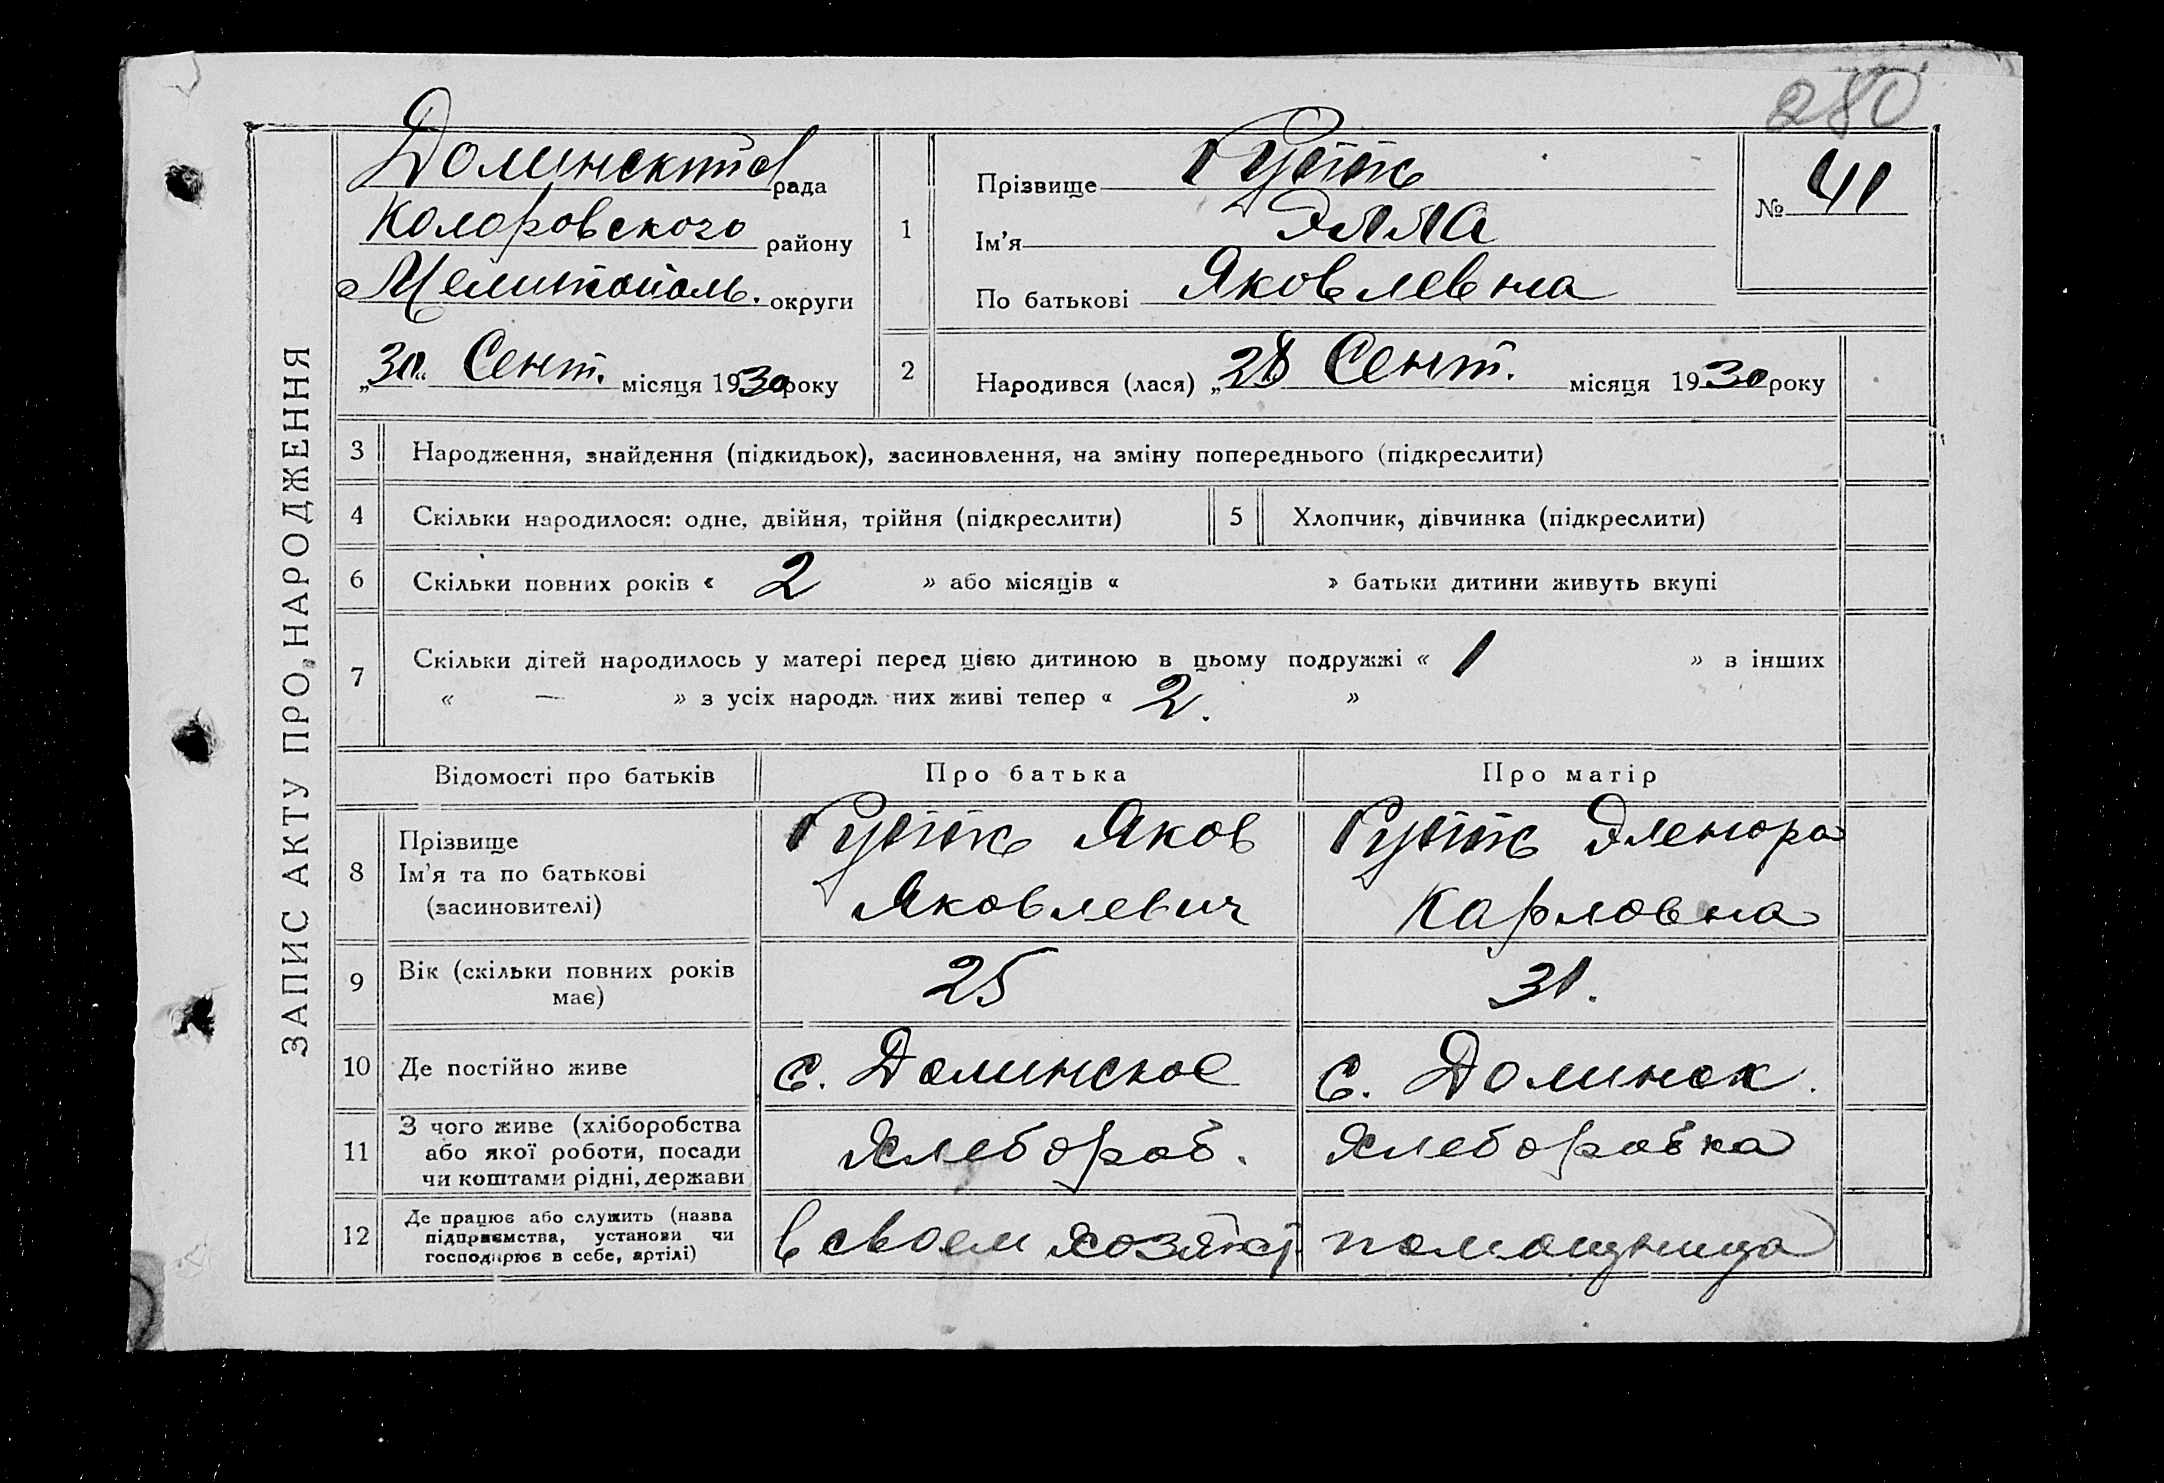 280
ЗАПИС АКТУ ПРО НАРОДЖЕННЯ
рада
Коларовского району
Мелитополь. округи
„30“ Сент. місяця 1930 року
1
Прізвище Гутть
Ім'я Элла
По батькові Яковлевна
№ 41
2
Народився (лася) „28 Сент. місяця 1930 року
3 Народження, знайдення (підкидьок), засиновлення, на зміну попереднього (підкреслити)
4 Скільки народилося: одне, двійня, трійня (підкреслити) 5 Хлопчик, дівчинка (підкреслити)
6 Скільки повних років « 2 » або місяців « » батьки дитини живуть вкупі
7 Скільки дітей народилось у матері перед цією дитиною в цьому подружжі « 1 » в інших
« — » з усіх народж них живі тепер « 2. »
Відомості про батьків Про батька Про матір
8 Прізвище
Ім'я та по батькові
(засиновителі)
Гутть Яков
Яковлевич
Гутть Эленора
Карловна
9 Вік (скільки повних років
має)
25
31.
10 Де постійно живе с. Долинское с. Долинск.
11 З чого живе (хліборобства
або якої роботи, посади
чи коштами рідні, держави
Хлебороб.
Хлеборобка
12 Де працює або служить (назва
підприємства, установи чи
господарює в себе, артілі)
в своем хозяйс.
помощница